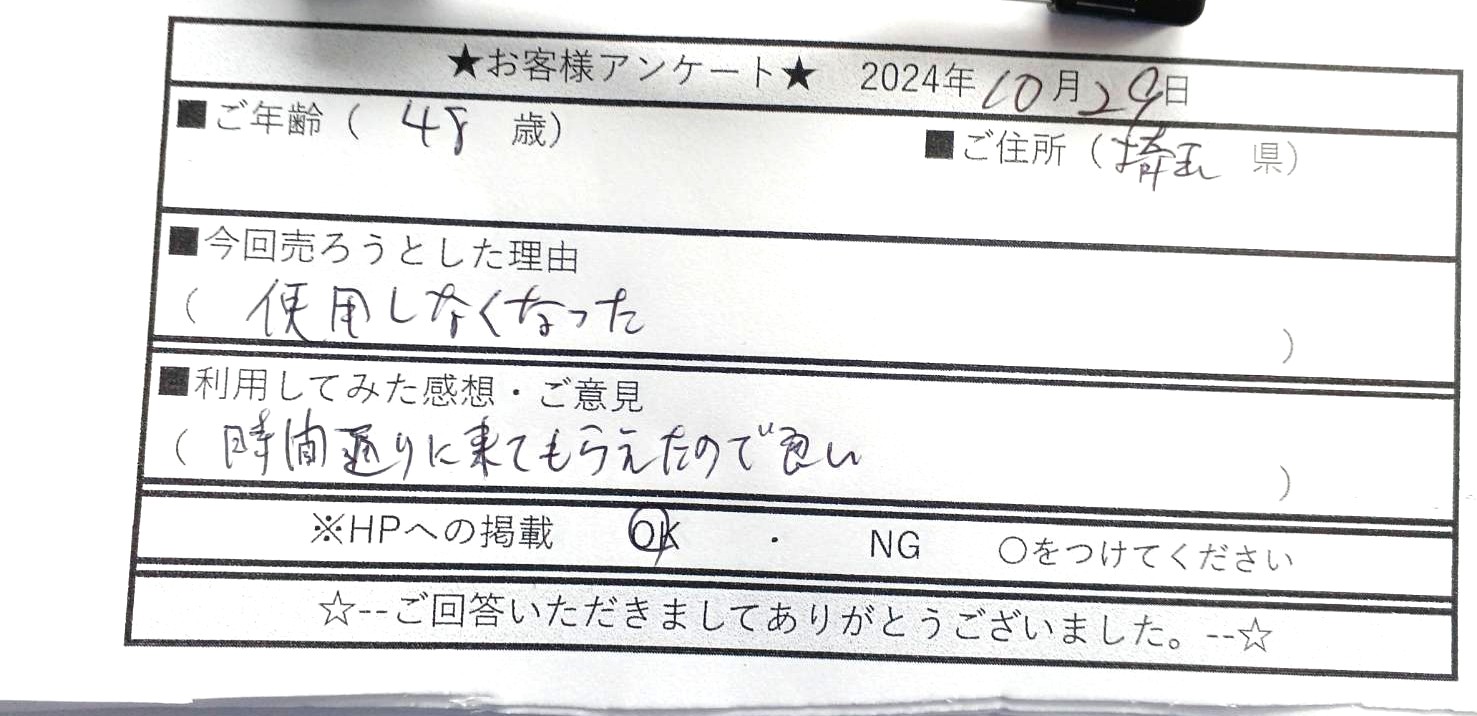 ★お客様アンケート★ 2024年10月29日
■ご年齢（ 48 歳）
■ご住所（埼玉 県）
■今回売ろうとした理由
（ 使用しなくなった ）
■利用してみた感想・ご意見
（ 時間通りに来てもらえたので良い ）
※HPへの掲載 OK ・ NG ○をつけてください
☆--ご回答いただきましてありがとうございました。--☆